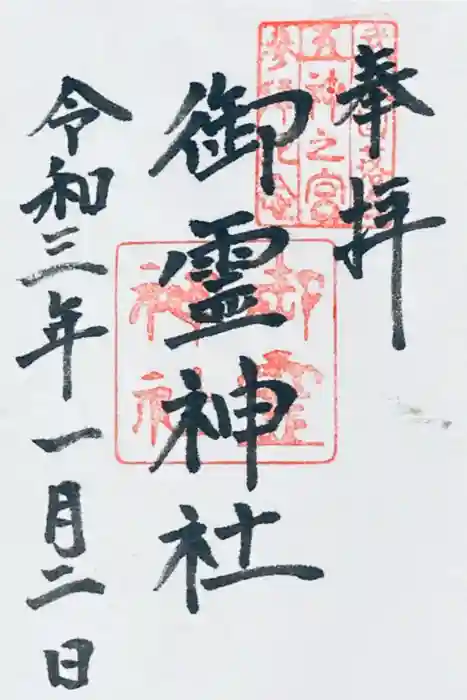 奉拝
御霊神社
令和三年一月二日
御霊
神社